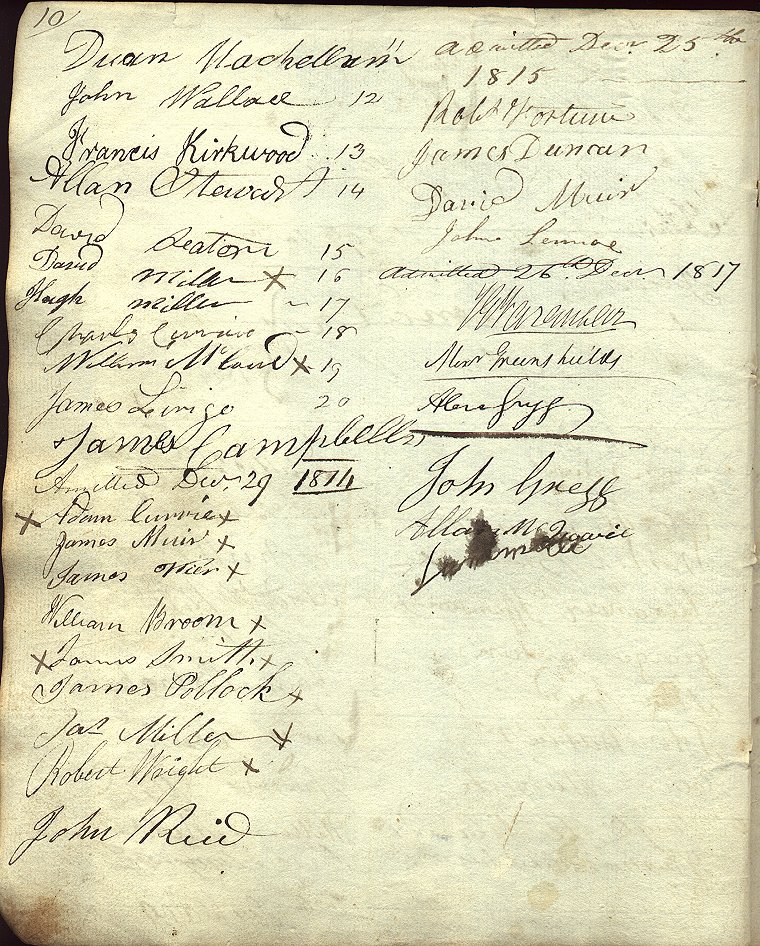 10
Duan Mackellum 11
John Wallace 12
Francis Kirkwood 13
Allan Stewart 14
David Seaton 15
David Miller x 16
Hugh Miller 17
Charles Currie 18
William x 19
James 20
James Campbell
Amitted Decr. 29 1814
x Adam Currie x
James Muir x
James x
William Broom x
x James Smith x
James Pollock x
Jas Miller x
Robert Wright x
John Reid
admitted Decr. 25th
1815
Robt Fortune
James Duncan
David Muir
John
admitted 26th Decr 1817
Alexr Greenshields
Alexr Gregg
John Gregg
Allan